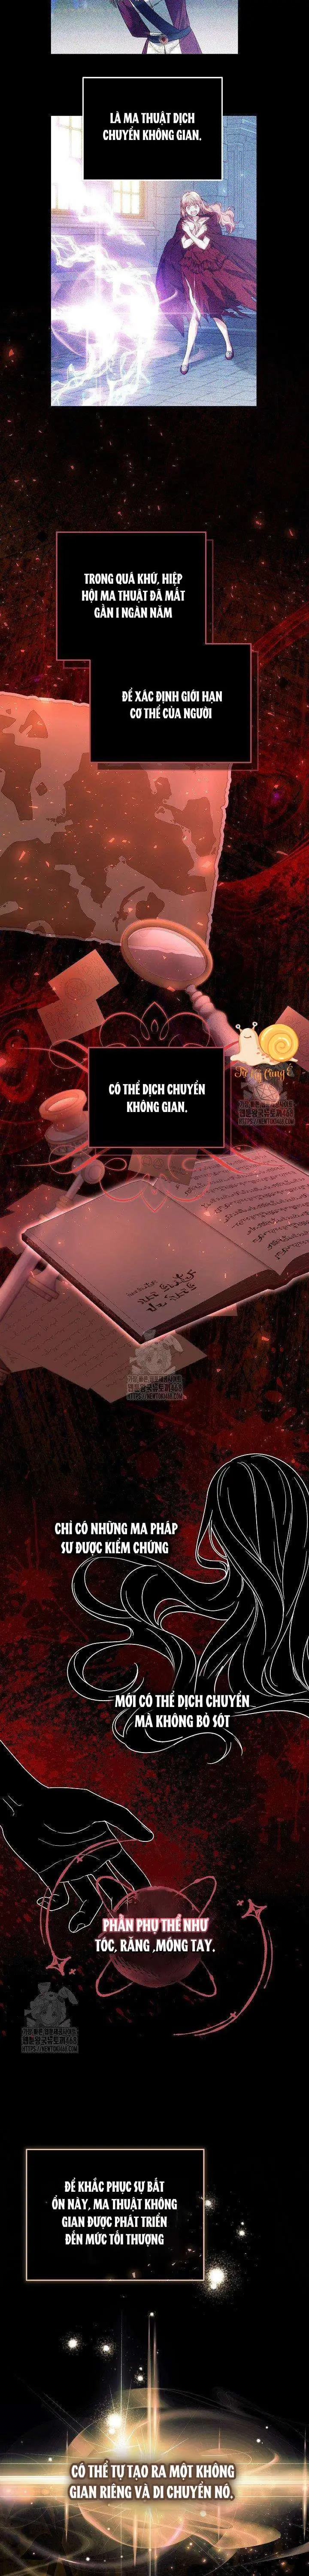 LÀ MA THUẬT DỊCH
CHUYỂN KHÔNG GIAN.
TRONG QUÁ KHỨ, HIỆP
HỘI MA THUẬT ĐÃ MẤT
GẦN 1 NGÀN NĂM
ĐỂ XÁC ĐỊNH GIỚI HẠN
CƠ THỂ CỦA NGƯỜI
CÓ THỂ DỊCH CHUYỂN
KHÔNG GIAN.
CHỈ CÓ NHỮNG MA PHÁP
SƯ ĐƯỢC KIỂM CHỨNG
MỚI CÓ THỂ DỊCH CHUYỂN
MÀ KHÔNG BỎ SÓT
PHẦN PHỤ THỂ NHƯ
TÓC, RĂNG ,MÓNG TAY.
ĐỂ KHẮC PHỤC SỰ BẤT
ỔN NÀY, MA THUẬT KHÔNG
GIAN ĐƯỢC PHÁT TRIỂN
ĐẾN MỨC TỐI THƯỢNG
CÓ THỂ TỰ TẠO RA MỘT KHÔNG
GIAN RIÊNG VÀ DI CHUYỂN NÓ.